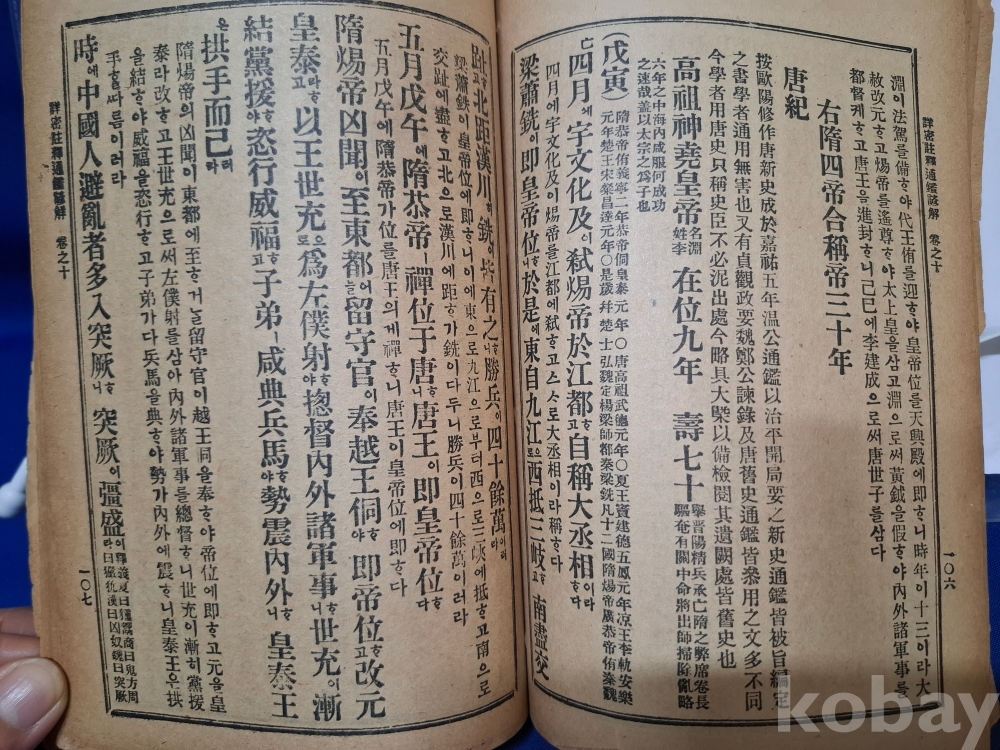 詳密註釋通鑑諺解　卷之十
一〇六
淵이法駕를備하야代王侑를迎하야皇帝位를天興殿에即하니時年이十三이라大
赦改元하고煬帝를遙尊하야太上皇을삼고淵으로써黃鉞을假하야內外諸軍事를
都督케하고唐王을進封하니己巳에李建成으로써唐世子를삼다
右隋四帝合稱帝三十年
唐紀
按歐陽修作唐新史成於嘉祐五年溫公通鑑以治平開局要之新史通鑑皆被旨編定
之書學者通用無害也又有貞觀政要魏鄭公諫錄及唐舊史通鑑皆叅用之文多不同
今學者用唐史只稱史臣不必泥出處今略具大槩以備檢閱其遺闕處皆舊史也
高祖神堯皇帝 名淵姓李 在位九年 壽七十 擧晋陽精兵承亡隋之弊席卷長驅奄有關中命將出師掃除亂略
六年之中海內咸服何成功之速哉盖以太宗之爲子也
(戊寅) 隋恭帝侑義寧二年恭帝侗皇泰元年〇唐高祖武德元年〇夏王竇建德五鳳元年凉王李軌安樂元年楚王朱粲昌達元年〇是歲幷楚士弘魏定楊梁師都秦梁銑凡十二國隋煬帝廣恭帝侑秦魏亡
四月에宇文化及이弑煬帝於江都하고自稱大丞相이라하다
四月에宇文化及이煬帝를江都에弑하고스사로大丞相이라稱하다
梁蕭銑이即皇帝位하니於是에東自九江으로西抵三峽하고南盡交
趾하고北距漢川히銑이皆有之하니勝兵이四十餘萬이러라
梁蕭銑이皇帝位에即하니이에東으로九江으로부터西으로三峽에抵하고南으로
交趾에盡하고北으로漢川에距하야銑이다두니勝兵이四十餘萬이러라
五月戊午에隋恭帝ㅣ禪位于唐하니唐王이即皇帝位하다
五月戊午에隋恭帝가位를唐王의게禪하니唐王이皇帝位에即하다
隋煬帝凶聞이至東都어늘留守官이奉越王侗하야即帝位하고改元
皇泰라하고以王世充으로爲左僕射하야摠督內外諸軍事하니世充이漸
結黨援하야恣行威福하고子弟ㅣ咸典兵馬하야勢震內外하니皇泰王
은拱手而已러라
隋煬帝의凶聞이東都에至하거늘留守官이越王侗을奉하야帝位에即하고元을皇
泰라改하고王世充으로써左僕射를삼아內外諸軍事를總督하니世充이漸히黨援
을結하야威福을恣行하고子弟가다兵馬를典하야勢가內外에震하니皇泰王은拱
手할따름이러라
時에中國人避亂者多入突厥하니突厥이彊盛이라 釋義夏曰獯鬻商曰鬼方周曰玁狁漢曰匈奴魏曰突厥
詳密註釋通鑑諺解　卷之十
一〇七
kobay